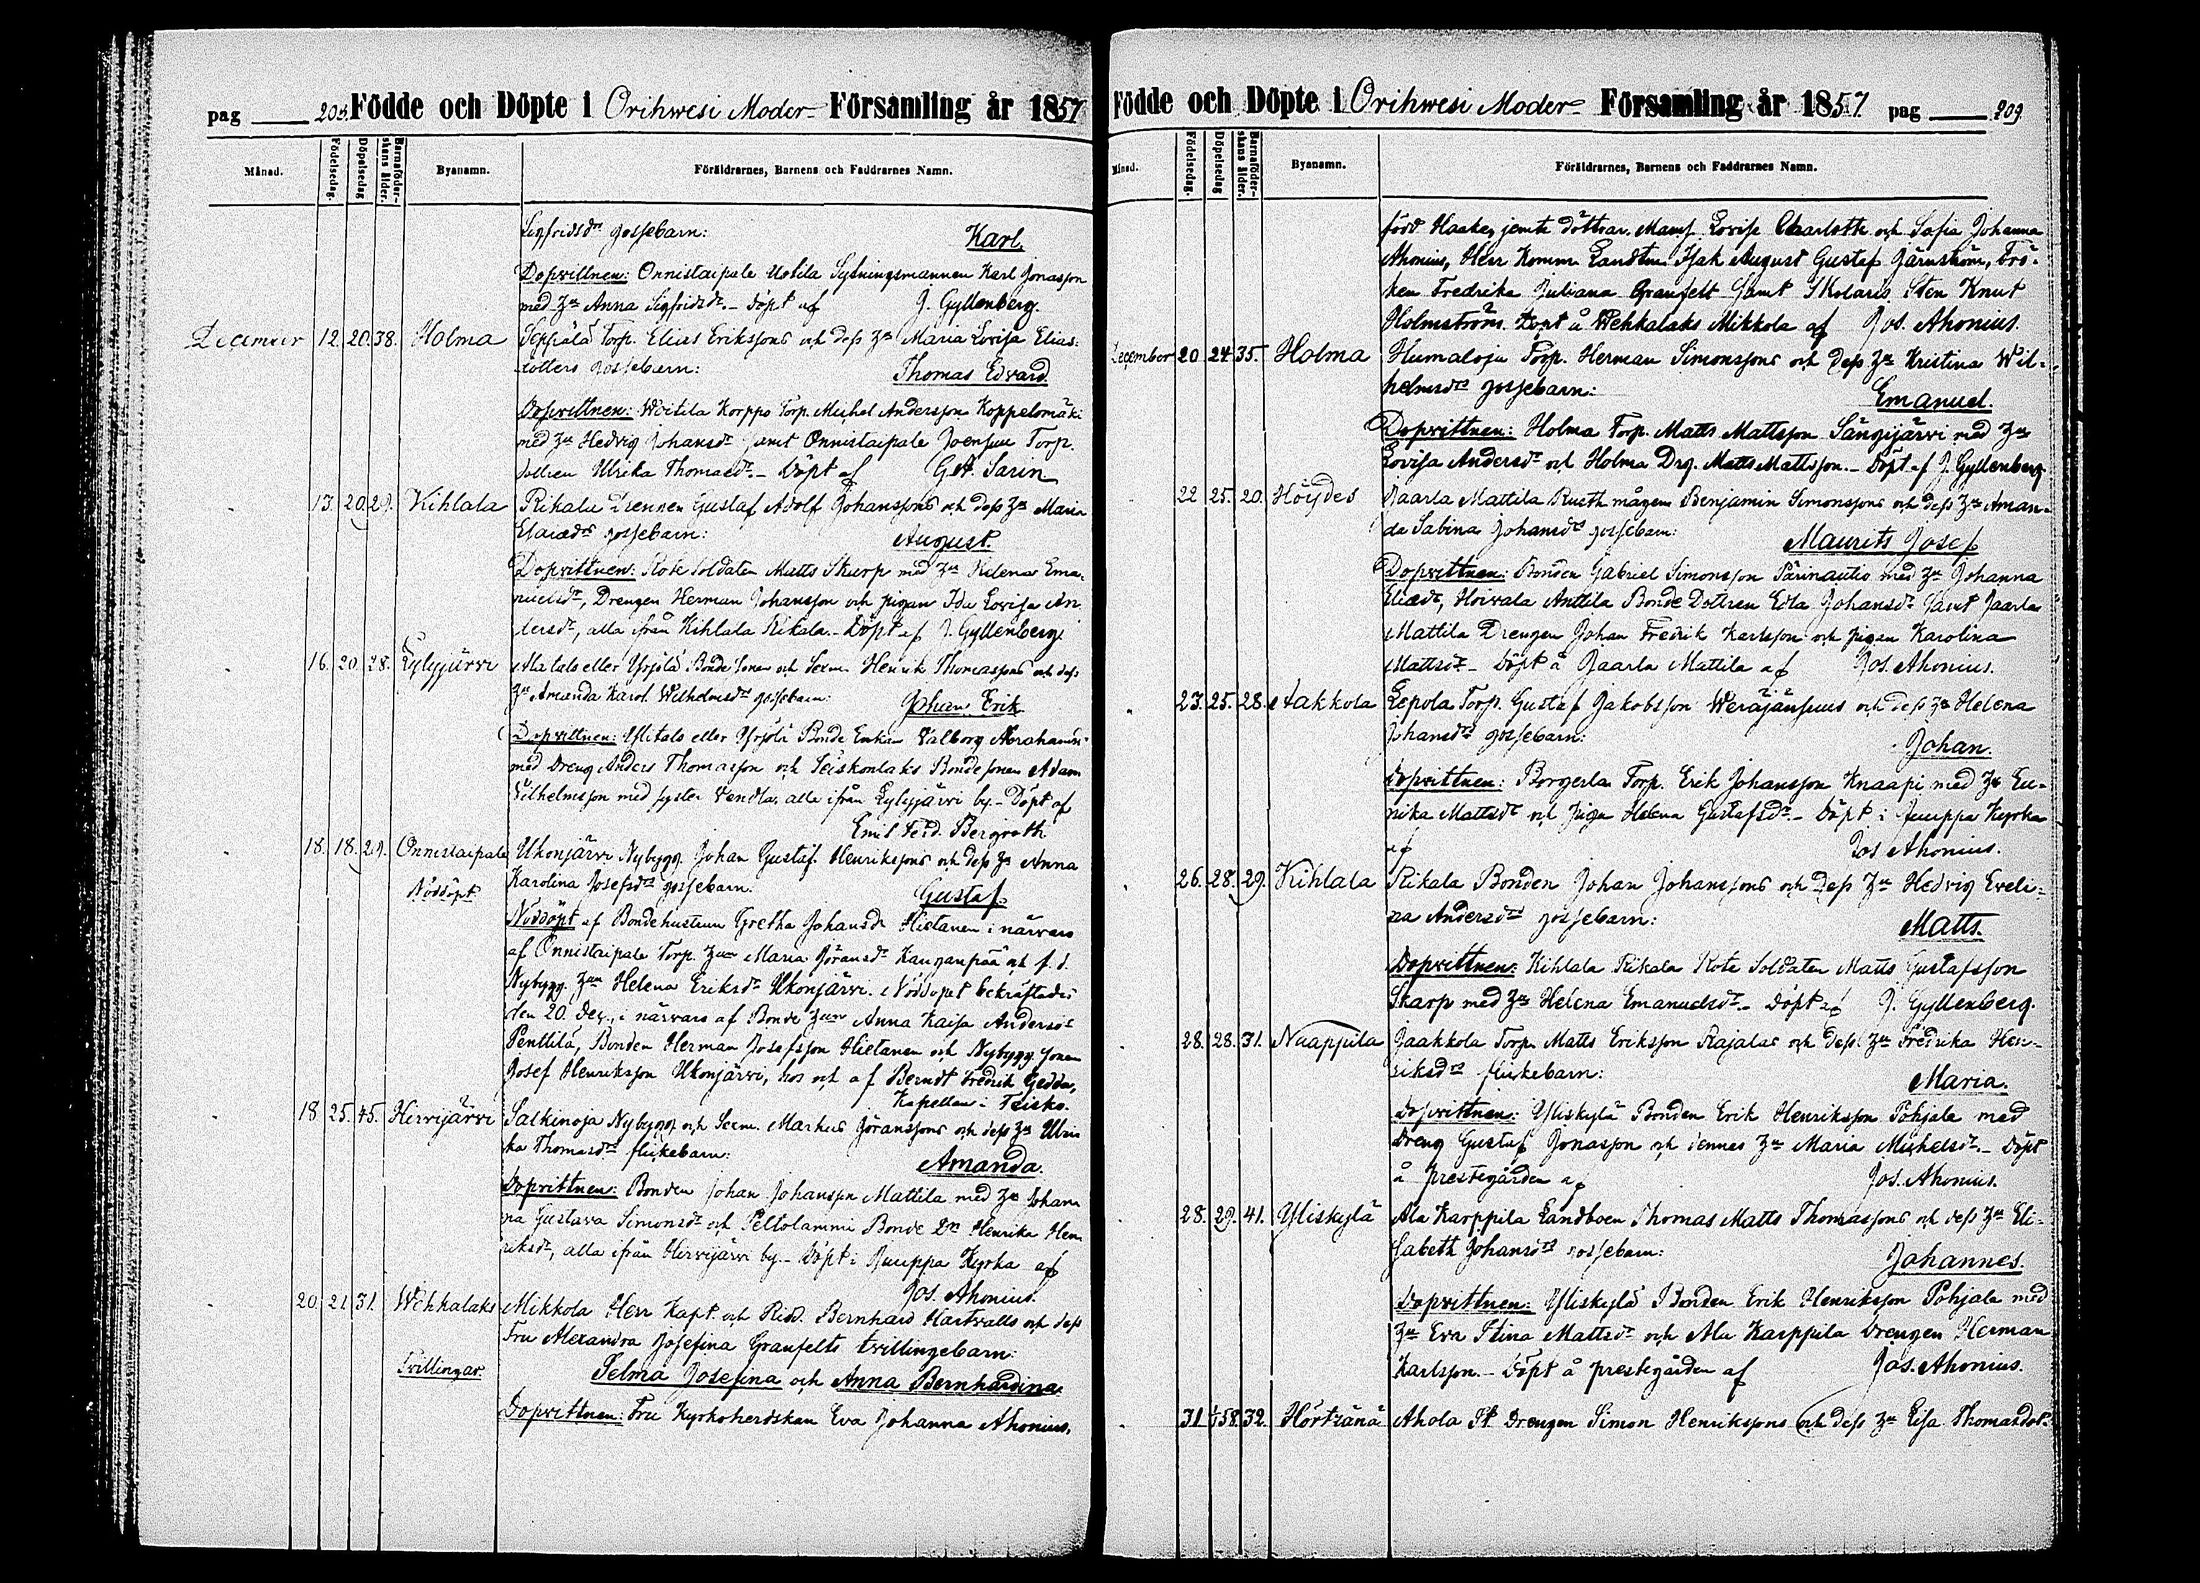 pag 208. Födde och Döpte i Orihwesi Moder- Församling år 1857
Månad. Födelsedag. Döpelsedag Barnaföderskans ålder. Byanamn. Föräldrarnes, Barnens och Faddrarnes Namn.
Sigfridsdrs gossebarn: Karl.
Dopvittnen: Onnistaipale Uotila Sytningsmannen Karl Jonasson
med Hu Anna Sigfridsdr. - Döpt af J. Gyllenberg.
December 12. 20. 38. Holma Seppälä Torp. Elias Erikssons och dess Hu Maria Lovisa Elias-
dotters gossebarn: Thomas Edvard.
Dopvittnen: Woitila Korppo Torp. Michel Andersson Koppelomäki
med Hu Hedvig Johansdr samt Onnistaipale Joensuu Torp.
dottren Ulrika Thomasdr. - Döpt af G.A. Sarin
13. 20. 29. Kihlala Rikala Drengen Gustaf Adolf Johanssons och dess Hu Maria
Eliaedrs gossebarn: August.
Dopvittnen: Rote Soldaten Matts Skarp med Hu Helena Ema-
nuelsdr, Drengen Herman Johansson och pigan Ida Lovisa An-
dersdr, alla ifrån Kihlala Rikala. - Döpt af J. Gyllenberg
16. 20. 28. Lylyjärvi Matala eller Yrjölä Bonde Sonen och Sexm. Henrik Thomassons och dess
Hu Amanda Karol. Wilhelmsdrs gossebarn: Johan Erik
Dopvittnen: Matala eller Yrjölä Bonde Enkan Valborg Abrahamsdr
med Dreng Anders Thomasson och Seiskonlaks Bondesonen Adam
Vilhelmsson med syster Vendla, alla ifrån Lylyjärvi by. - Döpt af
Emil Ferd. Bergroth
18. 18. 29. Onnistaipale Ukonjärvi Nybygg. Johan Gustaf Henrikssons och dess Hu Anna
Nöddöpt Karolina Josefsdrs gossebarn: Gustaf.
Nöddöpt af Bondehustrun Gretha Johansdr Hietanen i närvaro
af Onnistaipale Torp. Hun Maria Göransdr Kanganpää och f. d.
Nybygg. Hun Helena Eriksdr Ukonjärvi. Nöddopet bekräftades
den 20. Dec., i närvaro af Bonde Hun Anna Kaisa Andersdr
Penttilä, Bonden Herman Josefsson Hietanen och Nybygg. sonen
Josef Henriksson Ukonjärvi, hos och af Berndt Fredrik Gedda,
Kapellan i Teisko.
18. 25. 45. Hirvijärvi Salkinoja Nybygg och Sexm. Markus Göranssons och dess Hu Ulri-
ka Thomasdrs flickebarn: Amanda.
Dopvittnen: Bonden Johan Johansson Mattila med Hu Johan-
na Gustava Simonsdr och Peltolammi Bonde Dn Henrika Hen-
riksdr, alla ifrån Hirvijärvi by. - Döpt i Juuppa Kyrka af
Jos. Ahonius.
20. 21. 31. Wehkalaks Mikkola Herr Kapt. och Ridd. Bernhard Hartvalls och dess
Fru Alexandra Josefina Granfelts tvillingebarn:
Tvillingar. Selma Josefina och Anna Bernhardina.
Dopvittnen: Fru Kyrkoherdskan Eva Johanna Ahonius,
Födde och Döpte i Orihwesi Moder- Församling år 1857 pag 209
Månad. Födelsedag. Döpelsedag Barnaföderskans ålder. Byanamn. Föräldrarnes, Barnens och Faddrarnes Namn.
född Haake, jemte döttrar. Mams. Lovise Charlotte och Sofia Johanna
Ahonius, Herr Komm. Landtm. Isak August Gustaf Järnström, Frö-
ken Fredrika Juliana Granfelt samt Skolaris Sten Knut
Holmström. Döpt å Wehkalaks Mikkola af Jos. Ahonius.
December 20. 24. 35. Holma Humaloja Torp. Herman Simonssons och dess Hu Kristina Wil-
helmsdrs gossebarn: Emanuel.
Dopvittnen: Holma Torp. Matts Mattsson Sängijärvi med Hu
Lovisa Andersdr och Holma Drg. Matts Mattsson. - Döpt af J. Gyllenberg
22. 25. 20. Höydes Jaarla Mattila Rusth. mågen Benjamin Simonssons och dess Hu Aman-
da Sabina Johansdrs gossebarn: Maurits Josef
Dopvittnen: Bonden Gabriel Simonsson Pärinautio med Hu Johanna
Eliædr, Hoivala Anttila Bonde Dottren Edla Johansdr samt Jaarla
Mattila Drengen Johan Fredrik Karlsson och pigan Karolina
Mattsdr. - Döpt å Jaarla Mattila af Jos. Ahonius.
23. 25. 28. Hakkola Lepola Torp. Gustaf Jakobsson Weräjänsuus och dess Hu Helena
Johansdrs gossebarn: Johan.
Dopvittnen: Borgerla Torp. Erik Johansson Knaapi med Hu Eu-
nika Mattsdr och Piga Helena Gustafsdr. - Döpt i Juuppa Kyrka
af Jos Ahonius.
26. 28. 29. Kihlala Rikala Bonden Johan Johanssons och Dess Hu Hedvig Eveli-
na Andersdrs gossebarn: Matts.
Dopvittnen: Kihlala Rikala Rote Soldaten Matts Gustafsson
Skarp med Hu Helena Emanuelsdr. - Döpt af J. Gyllenberg.
28. 28. 31. Naappila Jaakkola Torp. Matts Eriksson Rajalas och dess Hu Fredrika Hen-
riksdrs flickebarn: Maria.
Dopvittnen: Yliskylä Bonden Erik Henriksson Pohjala med
Dreng Gustaf Jonasson och dennes Hu Maria Michelsdr. - Döpt
å prestegården af Jos. Ahonius.
28. 29. 41. Yliskylä Ala Karppila Landboen Thomas Matts Thomassons och dess Hu Eli-
sabeth Johansdrs gossebarn: Johannes.
Dopvittnen: Yliskylä Bonden Erik Henriksson Pohjala med
Hu Eva Stina Mattsdr och Ala Karppila Drengen Herman
Karlsson. - Döpt å prestegården af Jos. Ahonius.
31 1/1 58. 32. Hörtsänä Ahola Drengen Simon Henrikssons och dess Hu Lisa Thomasdot-